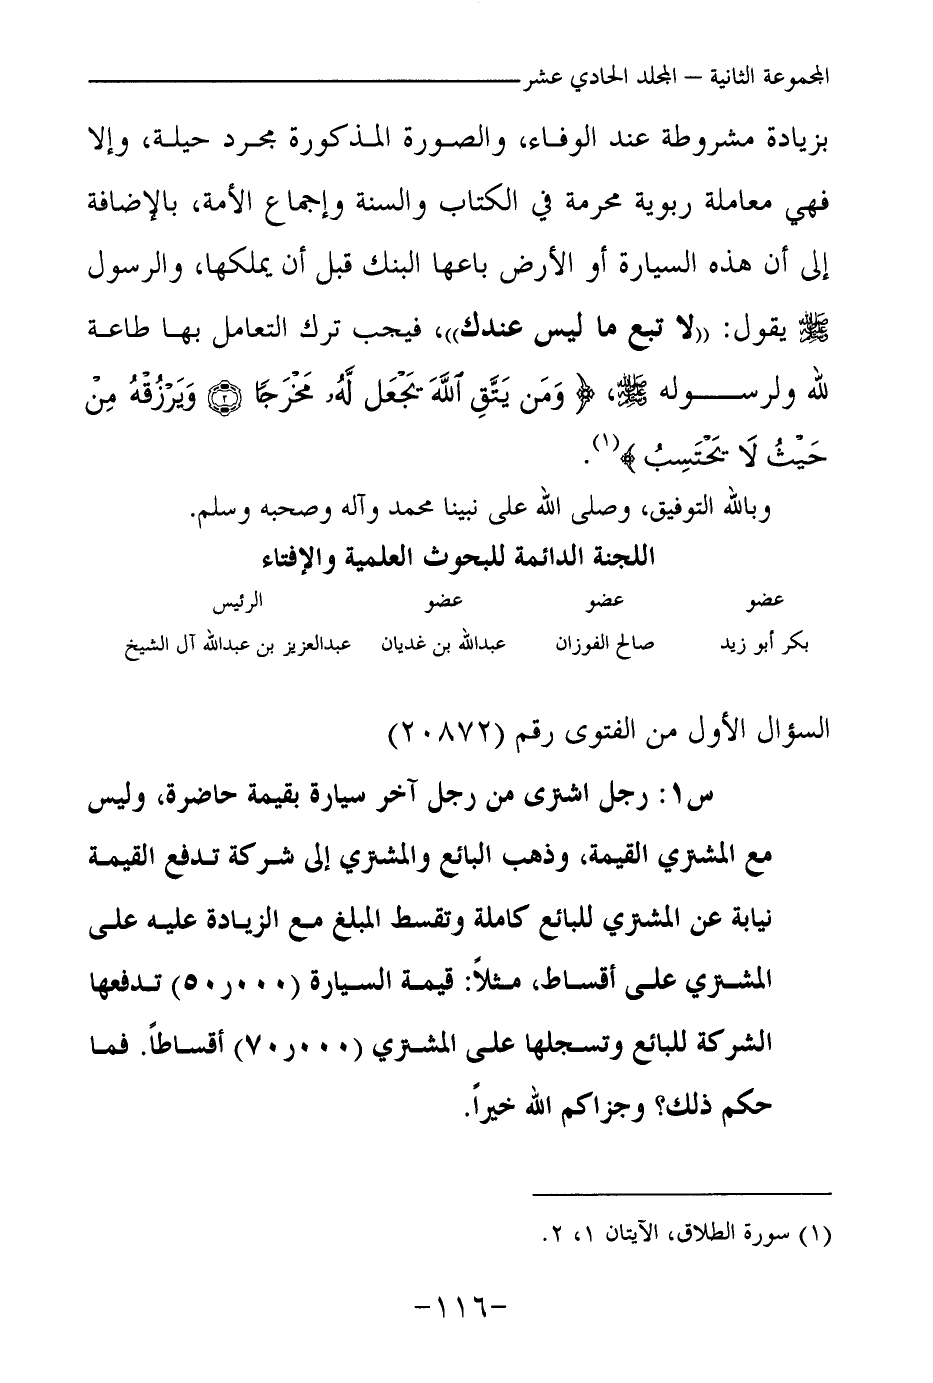 المجموعة الثانية – المجلد الحادي عشر
بزيادة مشروطة عند الوفاء، والصورة المذكورة مجرد حيلة، وإلا
فهي معاملة ربوية محرمة في الكتاب والسنة وإجماع الأمة، بالإضافة
إلى أن هذه السيارة أو الأرض باعها البنك قبل أن يملكها، والرسول
ﷺ يقول: ((لا تبع ما ليس عندك))، فيجب ترك التعامل بها طاعة
لله ولرسوله ﷺ، ﴿ وَمَن يَتَّقِ ٱللَّهَ يَجْعَل لَّهُۥ مَخْرَجًا ۝٢ وَيَرْزُقْهُ مِنْ
حَيْثُ لَا يَحْتَسِبُ ﴾(١).
وبالله التوفيق، وصلى الله على نبينا محمد وآله وصحبه وسلم.
اللجنة الدائمة للبحوث العلمية والإفتاء
عضو عضو عضو الرئيس
بكر أبو زيد صالح الفوزان عبدالله بن غديان عبدالعزيز بن عبدالله آل الشيخ
السؤال الأول من الفتوى رقم (٢٠٨٧٢)
س١: رجل اشترى من رجل آخر سيارة بقيمة حاضرة، وليس
مع المشتري القيمة، وذهب البائع والمشتري إلى شركة تدفع القيمة
نيابة عن المشتري للبائع كاملة وتقسط المبلغ مع الزيادة عليه على
المشتري على أقساط، مثلاً: قيمة السيارة (٥٠ر٠٠٠) تدفعها
الشركة للبائع وتسجلها على المشتري (٧٠ر٠٠٠) أقساطاً. فما
حكم ذلك؟ وجزاكم الله خيراً.
(١) سورة الطلاق، الآيتان ١، ٢.
-١١٦-